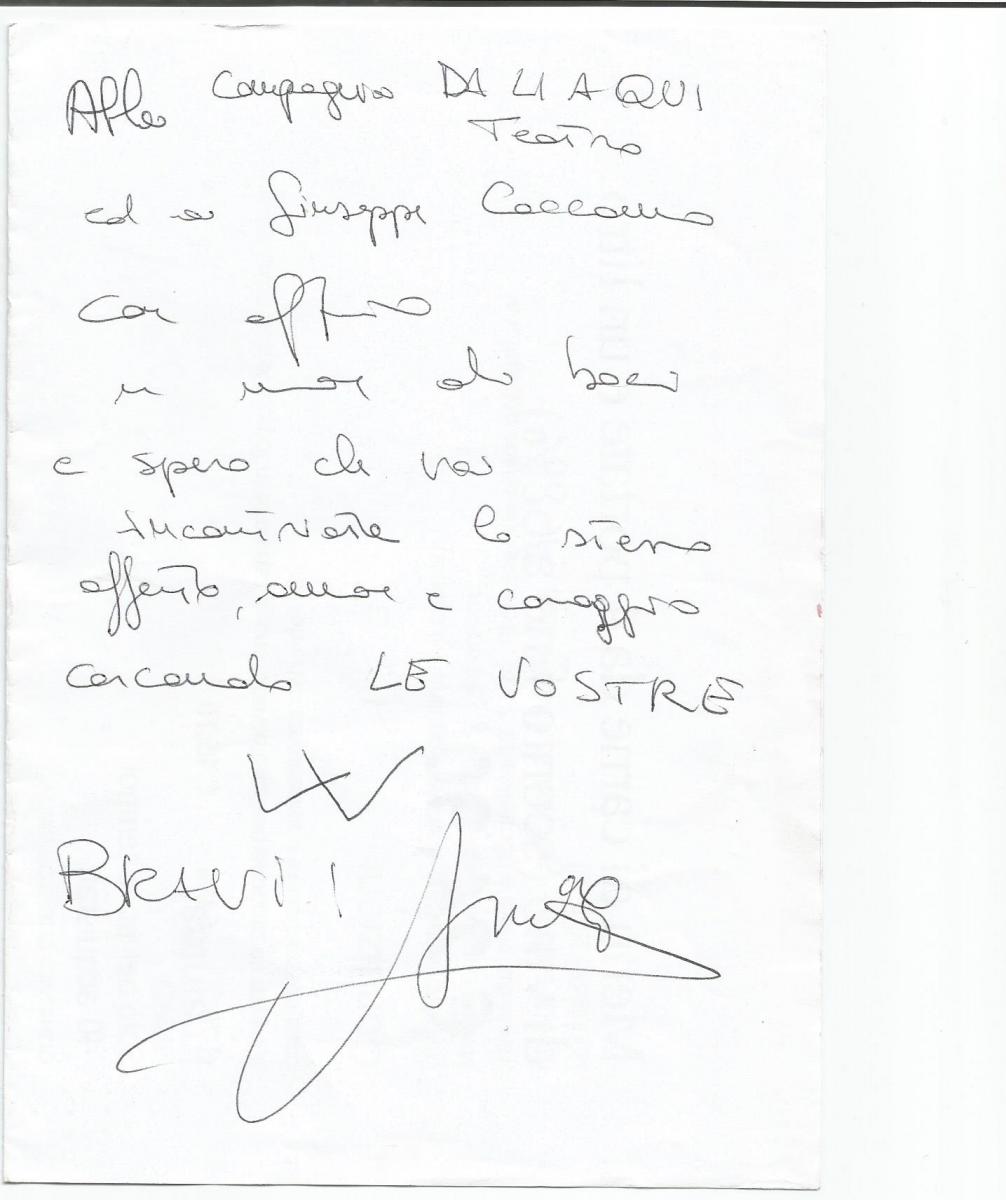 Alla Compagnia DA LI A QUI
Teatro
ed a Giuseppe Caccamo
con affetto
un mare di baci
e spero che voi
incontriate lo stesso
affetto, amore e coraggio
cercando LE VOSTRE
W
BRAVI!